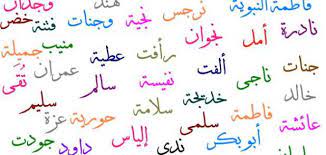 فاطمة النبوية نرجس هند وجدان
نادرة أمل نجوان نجية وجنات فتنة خضر
جنات ألفت رأفت عطية منيب جميلة
خالد ناجى نفيسة سالم عمران تُقى
عائشة فاطمة خديجة سلامة سليم
أبوبكر سلمى حورية عزة
ندى إلياس داود جودت